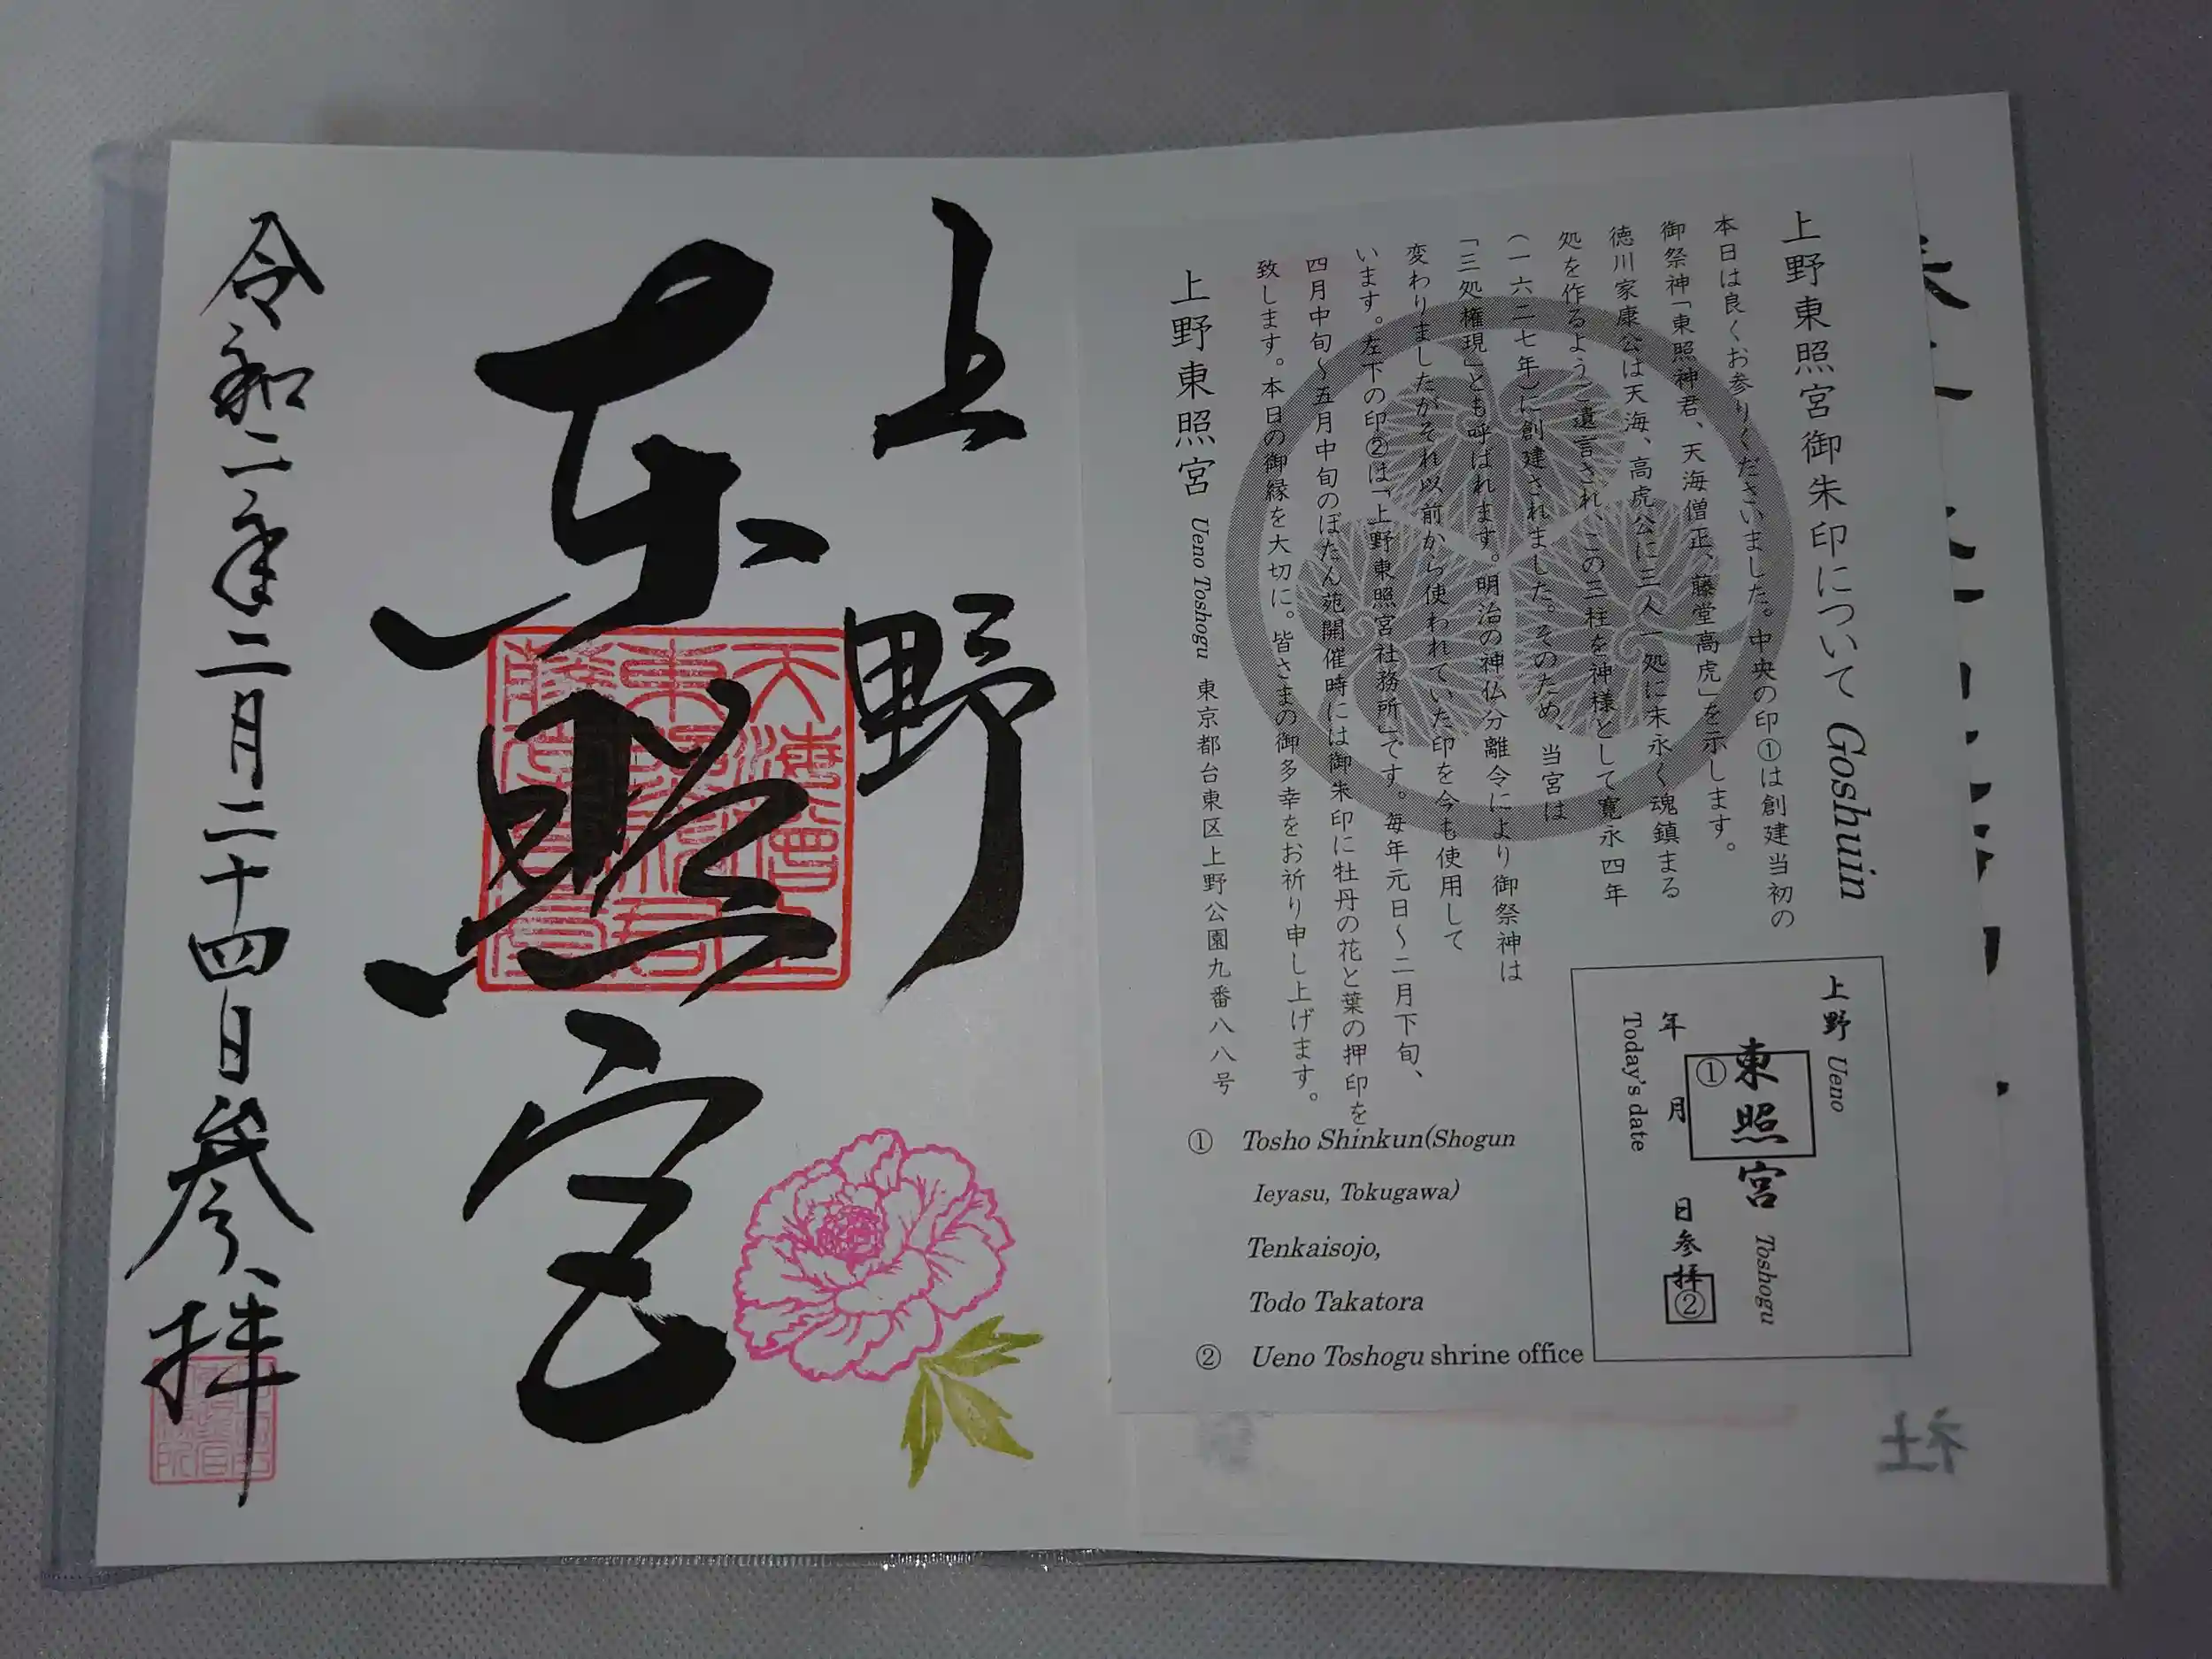 上野東照宮御朱印について Goshuin
本日は良くお参りくださいました。中央の印①は創建当初の
御祭神「東照神君、天海僧正、藤堂高虎」を示します。
徳川家康公は天海、高虎公に三人一処に末永く魂鎮まる
処を作るようご遺言され、この三柱を神様として寛永四年
(一六二七年)に創建されました。そのため、当宮は
「三処権現」とも呼ばれます。明治の神仏分離令により御祭神は
変わりましたがそれ以前から使われていた印を今も使用して
います。左下の印②は「上野東照宮社務所」です。毎年元日〜二月下旬、
四月中旬〜五月中旬のぼたん苑開催時には御朱印に牡丹の花と葉の押印を
致します。本日の御縁を大切に。皆さまの御多幸をお祈り申し上げます。
上野東照宮 Ueno Toshogu 東京都台東区上野公園九番八八号
上野 Ueno
①
東照宮 Toshogu
年 月 日参拝
②
Today's date
① Tosho Shinkun(Shogun
Ieyasu, Tokugawa)
Tenkaisojo,
Todo Takatora
② Ueno Toshogu shrine office
社
上野
東照宮
天海僧正
東照神君
藤堂高虎
令和二年二月二十四日参拝